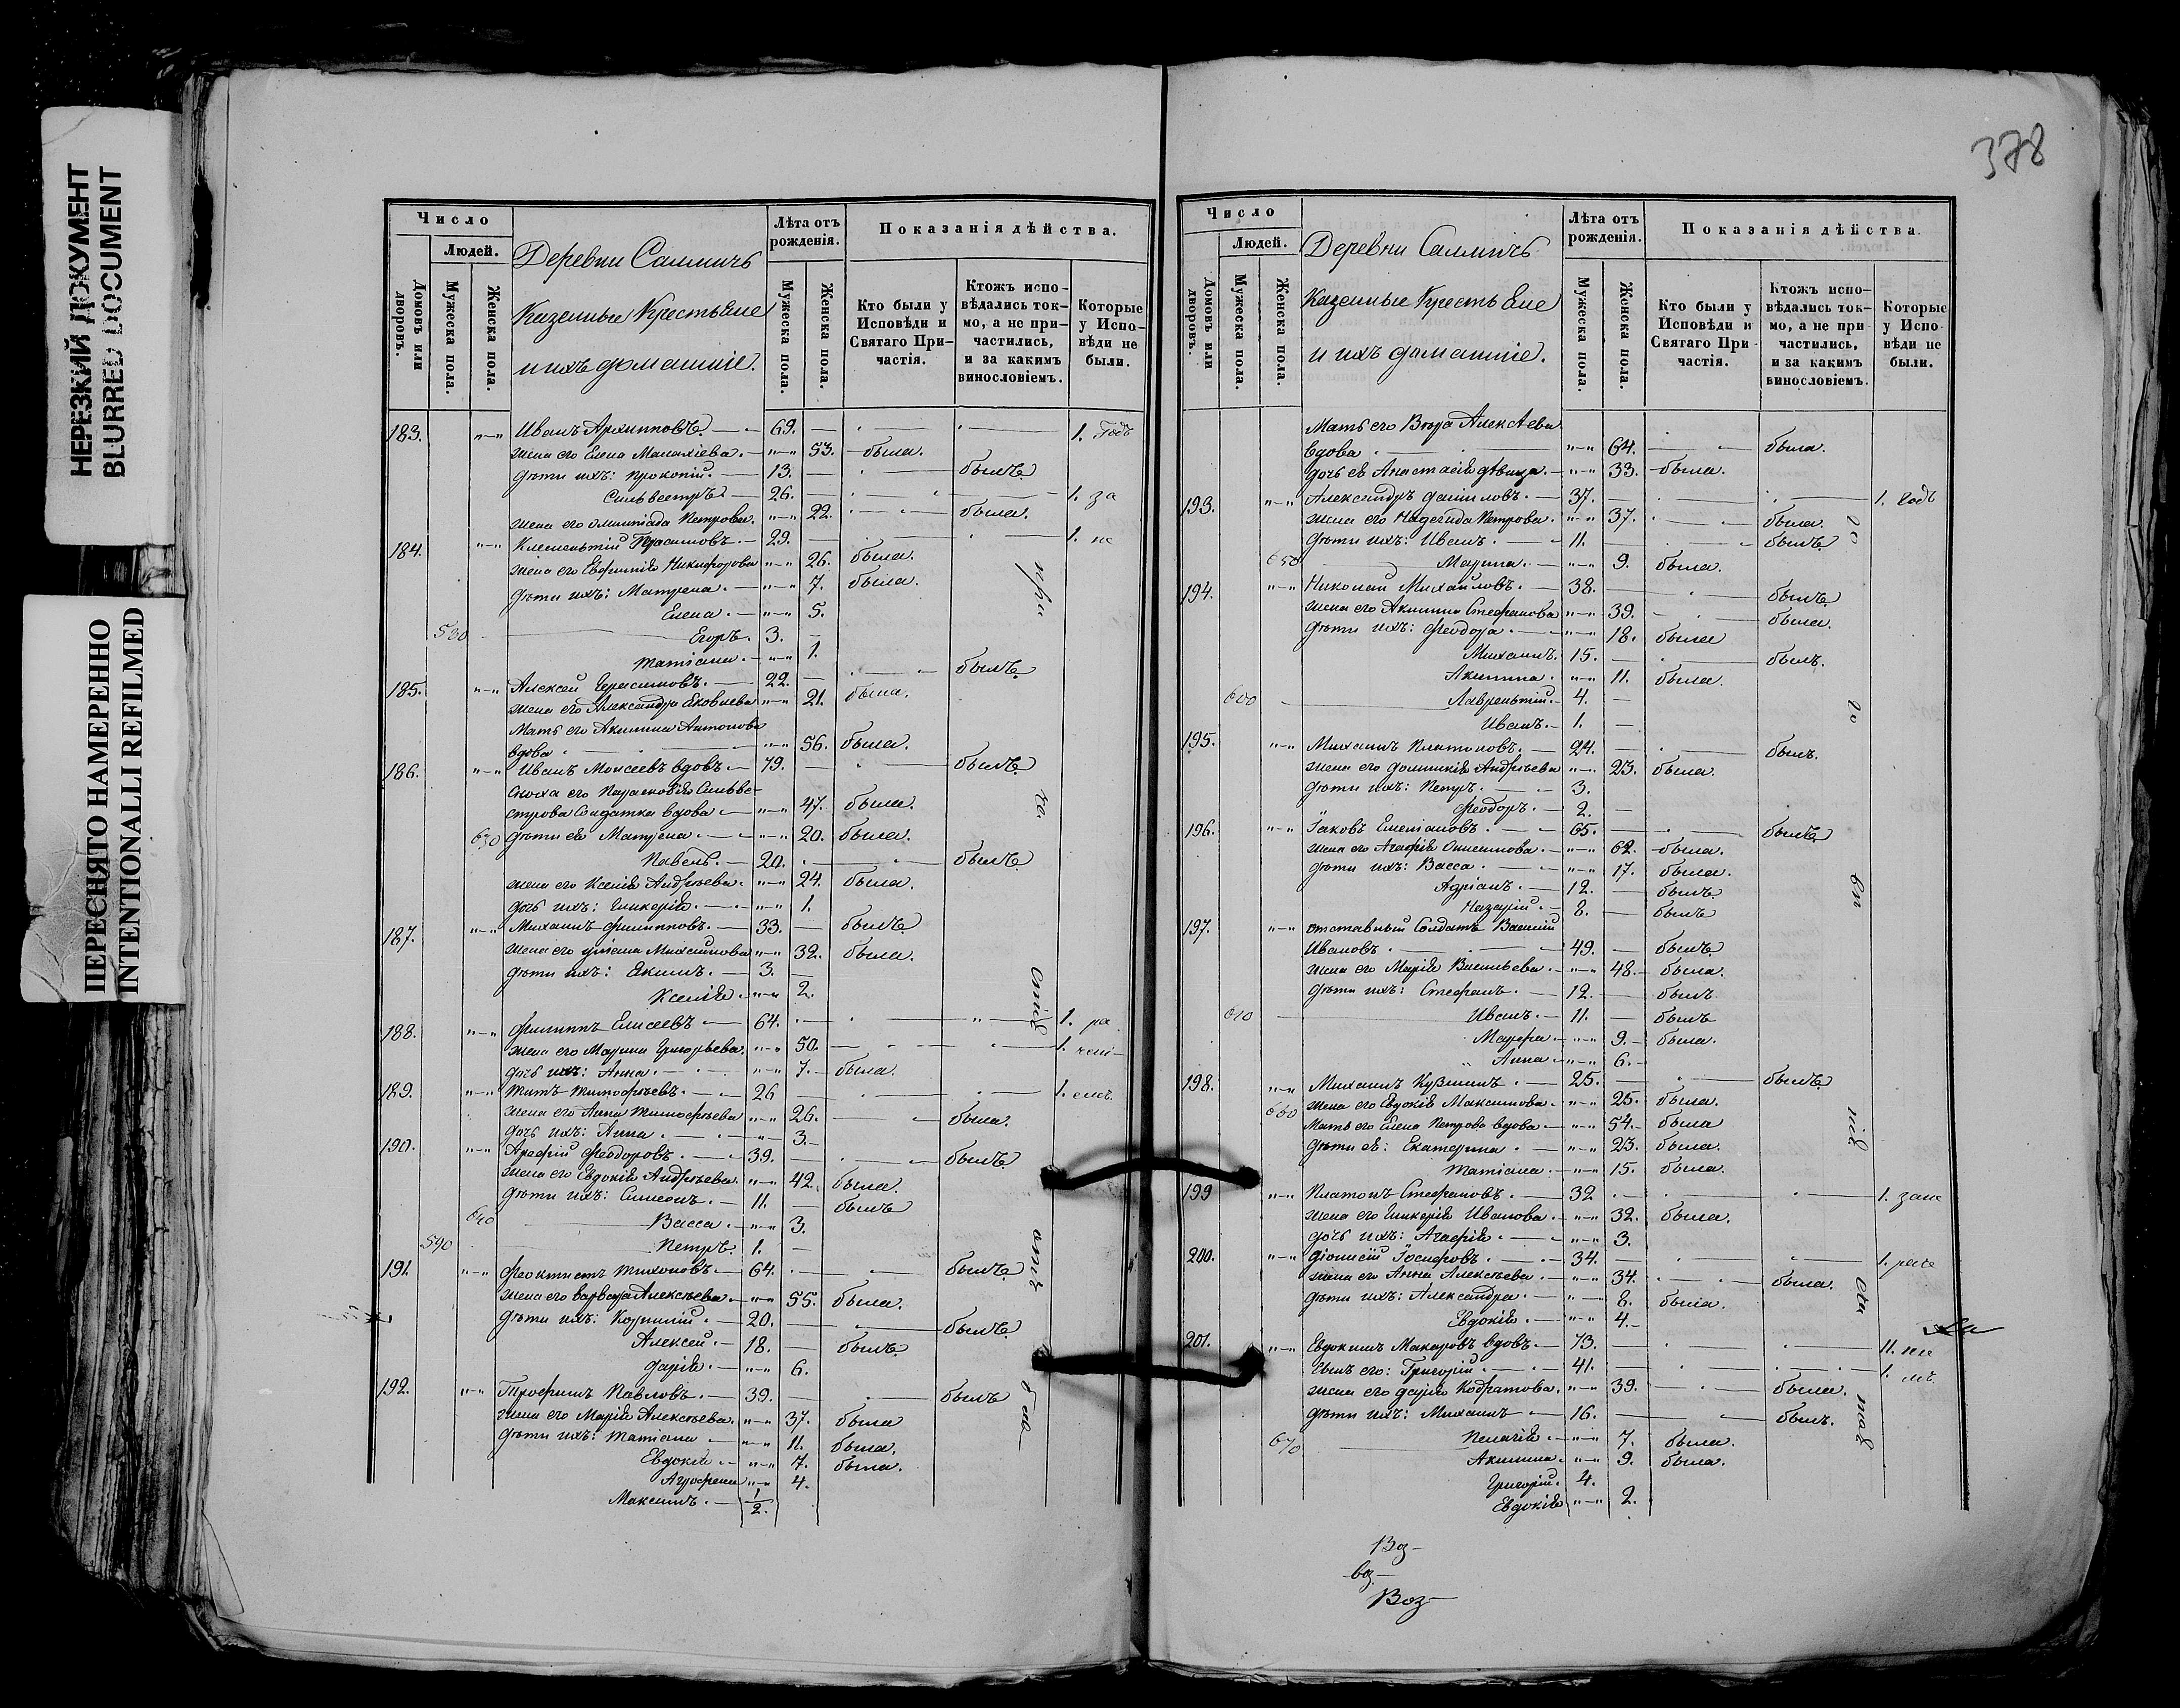 НЕРЕЗКИЙ ДОКУМЕНТ
BLURRED DOCUMENT
ПЕРЕСНЯТО НАМЕРЕННО
INTENTIONALLI REFILMED
Число
Людей.
Домовъ или дворовъ.
Мужеска пола.
Женска пола.
Деревни
Казенные Крестьяне
и ихъ домашніе.
Лѣта отъ рожденія.
Мужеска пола.
Женска пола.
Показанія дѣйства.
Кто были у Исповѣди и Святаго При-частія.
Ктожъ испо-вѣдались ток-мо, а не при-частились, и за какимъ винословіемъ.
Которые у Испо-вѣди не были.
183. Иванъ Архиповъ. 69. 1. Годъ
жена его Елена Малахіева. 53. была.
дѣти ихъ: Прокопій. 13. былъ
Сильвестръ 26. 1. за
жена его Олимпіада Петрова. 22. была.
184. Климентій 29. 1. не
жена его Евфимія Никифорова 26. была.
дѣти ихъ: Матрена. 7. была.
Елена. 5.
580 Егоръ. 3.
Татіана. 1.
185. Алексей Герасимовъ. 22. былъ
жена его Александра Яковлева 21. была.
Мать его Акилина Антонова
вдова 56. была.
186. Иванъ Моисеевъ вдовъ. 79. былъ
Сноха его Парасковія Сильве-
строва Солдатка вдова 47. была.
630 дѣти ея Матрена. 20. была.
Павелъ. 20. былъ
жена его Ксенія Андреева. 24. была.
дочь ихъ: Гликерія. 1.
187. Михаилъ Филипповъ. 33. былъ
жена его Уліана Михайлова 32. была.
дѣти ихъ: Якимъ. 3.
Ксенія. 2.
188. Филиппъ Елисеевъ 64. 1. ра
жена его Марина Григорьева. 50. 1.
дочь ихъ: Анна. 7. была.
189. Титъ Тимофѣевъ. 26 1.
жена его Анна Тимофѣева 26. была.
дочь ихъ: Анна. 3.
190. Арефій Феодоровъ. 39. былъ
жена его Евдокія Андрѣева. 42. была.
дѣти ихъ: Симеонъ. 11. былъ
640 Васса. 3.
590 Петръ. 1.
191. Феоктистъ Тихоновъ. 64. былъ
жена его Варвара Алексѣева. 55. была.
дѣти ихъ: Корнилій. 20. былъ
Алексей. 18. былъ
Дарія. 6.
192. Трофимъ Павловъ. 39. былъ
жена его Марія Алексѣева. 37. была
дѣти ихъ: Татіана 11. была.
Евдокія 7. была.
Агрофена 4.
Максимъ. 1/2.
при
ча
стія
отъ
378
Число
Людей.
Домовъ или дворовъ.
Мужеска пола.
Женска пола.
Деревни
Казенные Крестьяне
и ихъ домашніе.
Лѣта отъ рожденія.
Мужеска пола.
Женска пола.
Показанія дѣйства.
Кто были у Исповѣди и Святаго При-частія.
Ктожъ испо-вѣдались ток-мо, а не при-частились, и за какимъ винословіемъ.
Которые у Испо-вѣди не были.
Мать его Алексѣева
вдова 64. была.
дочь ея Анастасія дѣвица. 33. была.
193. Александръ Даниловъ. 37. 1. Годъ
жена его Надежда Петрова. 37. была.
дѣти ихъ: Иванъ. 11. былъ
650 Марина. 9. была.
194. Николай Михайловъ. 38. былъ
жена его Акилина Стефанова 39. была.
дѣти ихъ: Феодора. 18. была
Михаилъ. 15. былъ.
Акилина. 11. была.
600 Лаврентій. 4.
Иванъ. 1.
195. Михаилъ Платоновъ. 24. былъ.
жена его Домникія Андрѣева 23. была.
дѣти ихъ: Петръ. 3.
Феодоръ. 2.
196. Іаковъ Емеліановъ. 65. былъ
жена его Агафія Онисимова. 62. была.
дѣти ихъ: Васса. 17. была.
Адріанъ. 12. былъ
Назарій. 8. былъ
197. отставный Солдатъ Василій
Ивановъ. 49. былъ
жена его Марія Васильева. 48. была.
дѣти ихъ: Стефанъ. 12. былъ
610 Иванъ. 11. былъ
Марфа. 9. была.
Анна. 6.
198. Михаилъ Кузминъ. 25. былъ
660 жена его Евдокія Максимова. 25. была.
Мать его Елена Петрова вдова 54. была
дѣти ея: Екатерина. 23. была.
Татіана. 15. была.
199 Платонъ Стефановъ. 32 1.
жена его Гликерія Иванова. 32. была.
дочь ихъ: Агафія. 3.
200. Діонисій Іосифовъ. 34. 1.
жена его Анна Алексѣева. 34. была.
дѣти ихъ: Александра. 8. была.
Евдокія. 4.
201. Евдокимъ Макаровъ вдовъ. 73. 11.
Сынъ его: Григорій. 41. 1.
жена его Дарія Кодратова. 39. была.
дѣти ихъ: Михаилъ 16. былъ.
670 Пелагія. 7. была.
Акилина. 9. была.
Григорій. 4.
Евдокія 2.
Воз